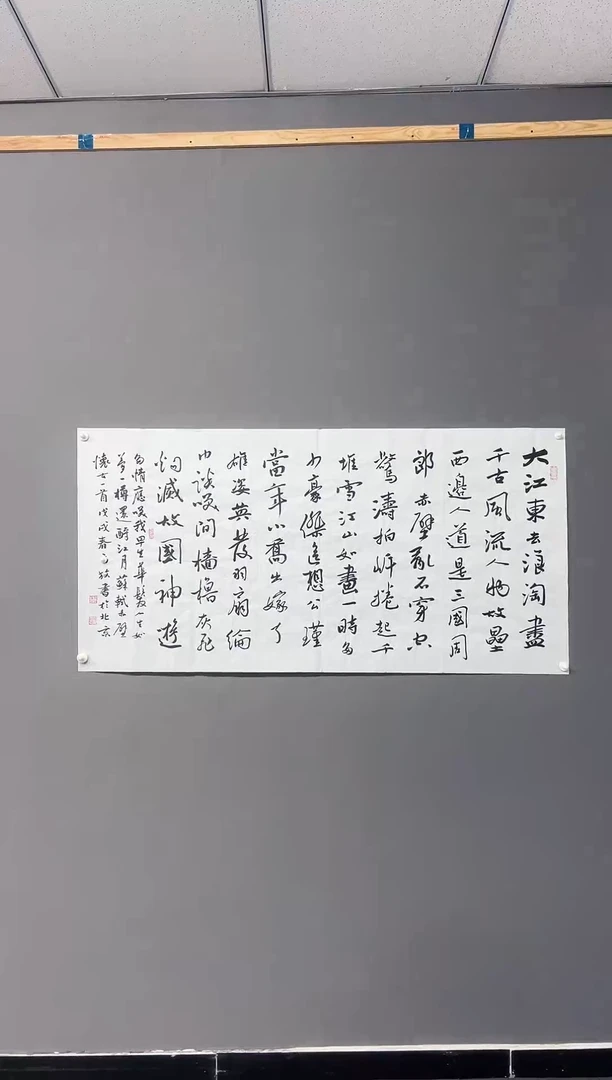 大江東去浪淘盡
千古風流人物故壘
西邊人道是三國周
郎赤壁亂石穿空
驚濤拍岸捲起千
堆雪江山如畫一時多
少豪傑遙想公瑾
當年小喬出嫁了
雄姿英發羽扇綸
巾談笑間檣櫓灰飛
烟滅故國神遊
多情應笑我早生華髮人生如
夢一樽還酹江月蘇軾赤壁
懷古一首戊戌春牧書於北京